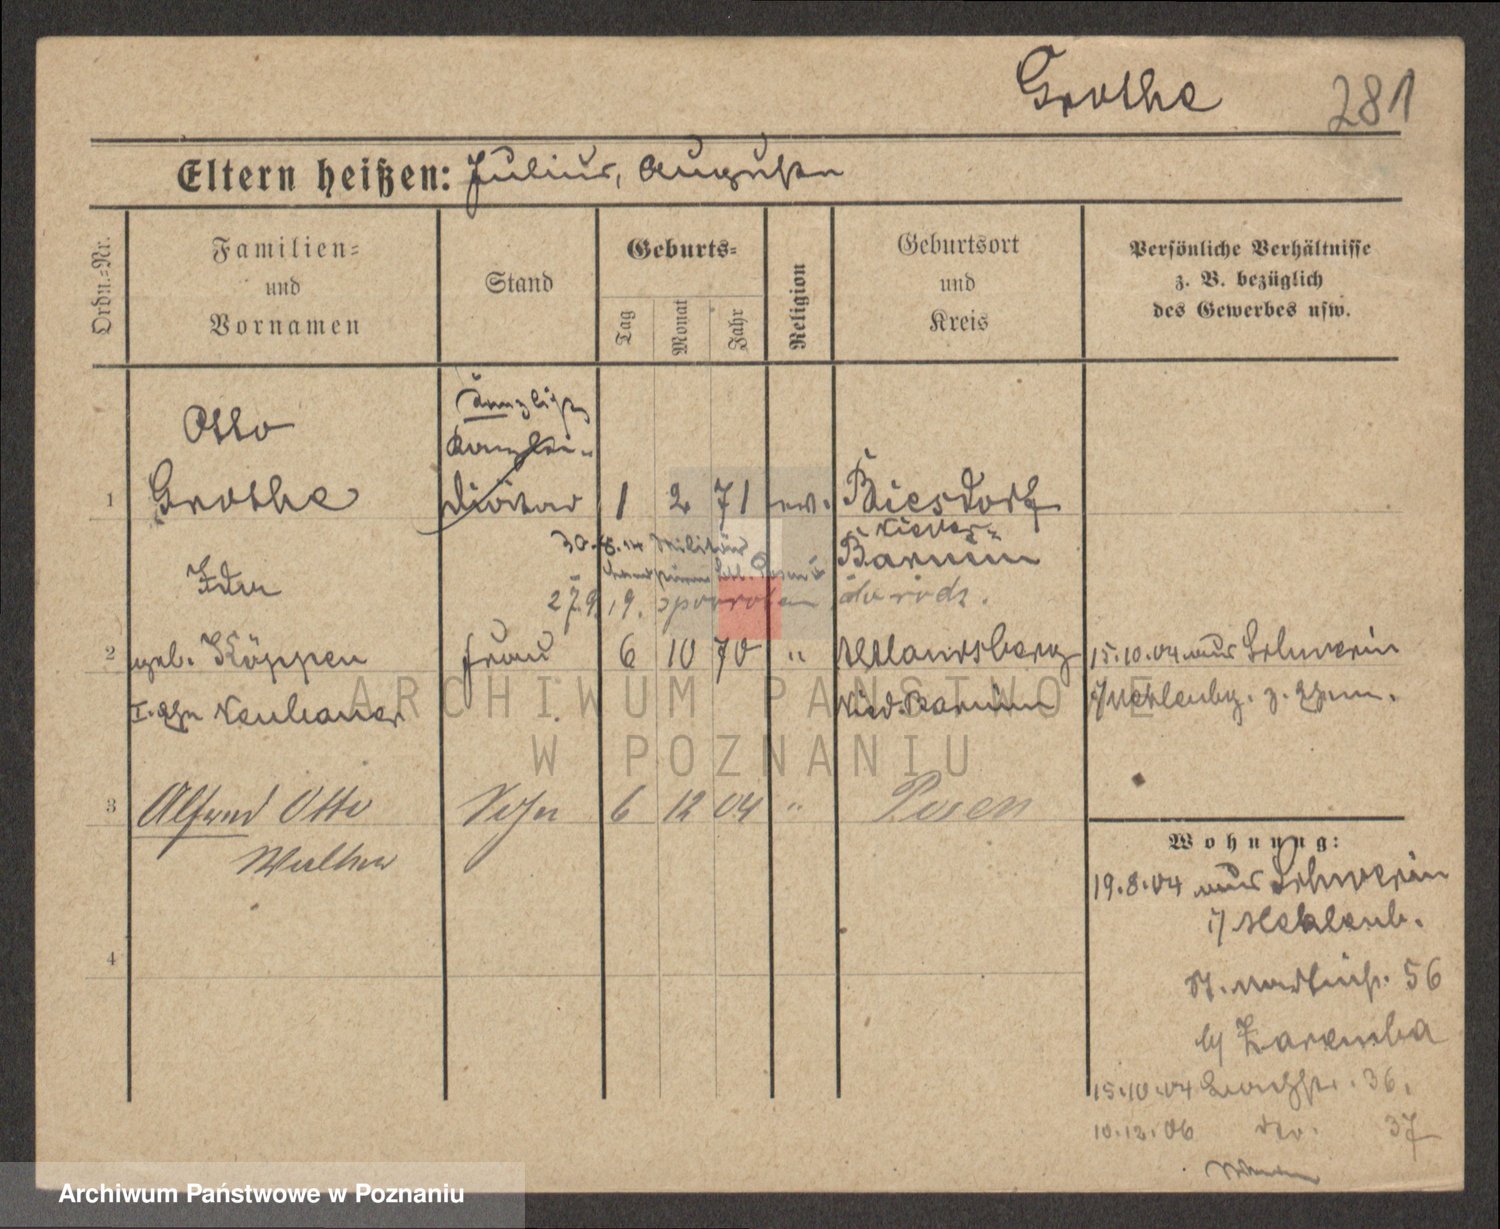 Grothe 281
Eltern heißen: Julius, Auguste
Ordn.=Nr.
Familien=
und
Vornamen
Stand
Geburts=
Tag
Monat
Jahr
Religion
Geburtsort
und
Kreis
Persönliche Verhältnisse
z. B. bezüglich
des Gewerbes usw.
Otto
Kanzlist
Kanzlei-
1 Grothe Diätar 1 2 71 ev. Biesdorf
Nieder-
30. 8. 14 Militär Barnim
Ida
27.9.19.
2 geb. Köppen Frau 6 10 70 " Altlandsberg 15.10.04 aus Schwerin
I. Ehe Neubauer Nied. Barnim i/Mecklenbg. z. Ehem.
ARCHIWUM PAŃSTWOWE
W POZNANIU
3 Alfred Otto Sohn 6 12 04 " Posen
Walther
Wohnung:
19.8.04 aus Schwerin
i/ Mecklenb.
4
St. Martinstr. 56
b/ Zaremba
15.10.04 36.
10.12.06 37
Archiwum Państwowe w Poznaniu